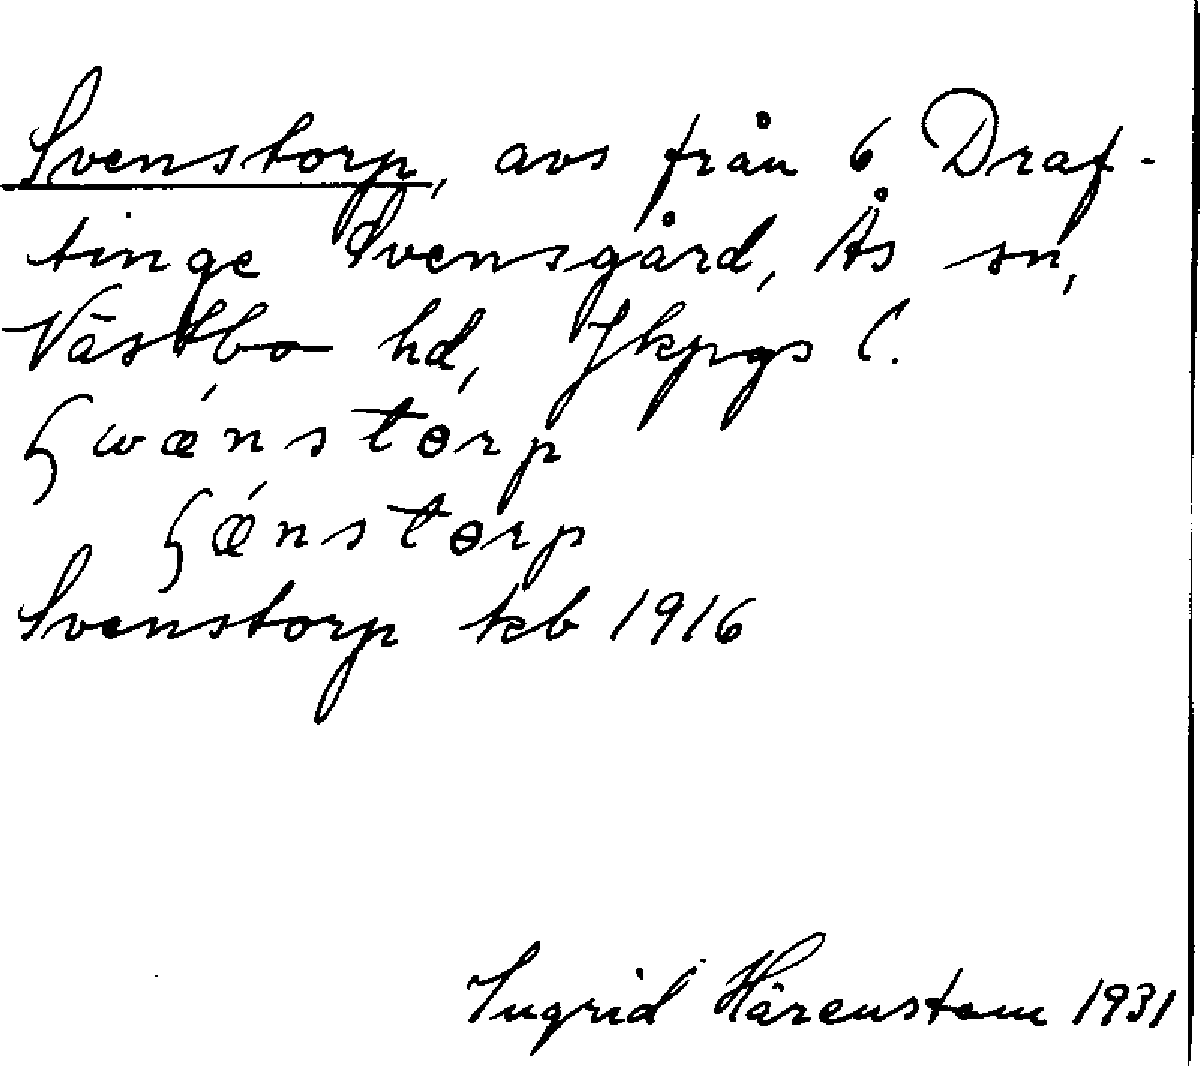 Svenstorp, avs från 6 Draf-
tinge Svensgård, Ås sn,
Västbo hd, Jkpgs l.
ɧwǽnstɵrp
ɧǽnstɵrp
Svenstorp kb 1916
Ingrid Härenstam 1931